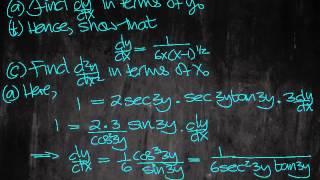 (a) Find dy/dx in terms of y.
(b) Hence, show that
dy/dx = 1/(6x(x-1)^1/2)
(c) Find d²y/dx² in terms of x.
(a) Here,
1 = 2sec3y · sec3ytan3y · 3dy/dx
1 = (2·3)/(cos³3y) sin3y · dy/dx
⟹ dy/dx = 1/6 cos³3y/sin3y = 1/(6sec²3y tan3y)